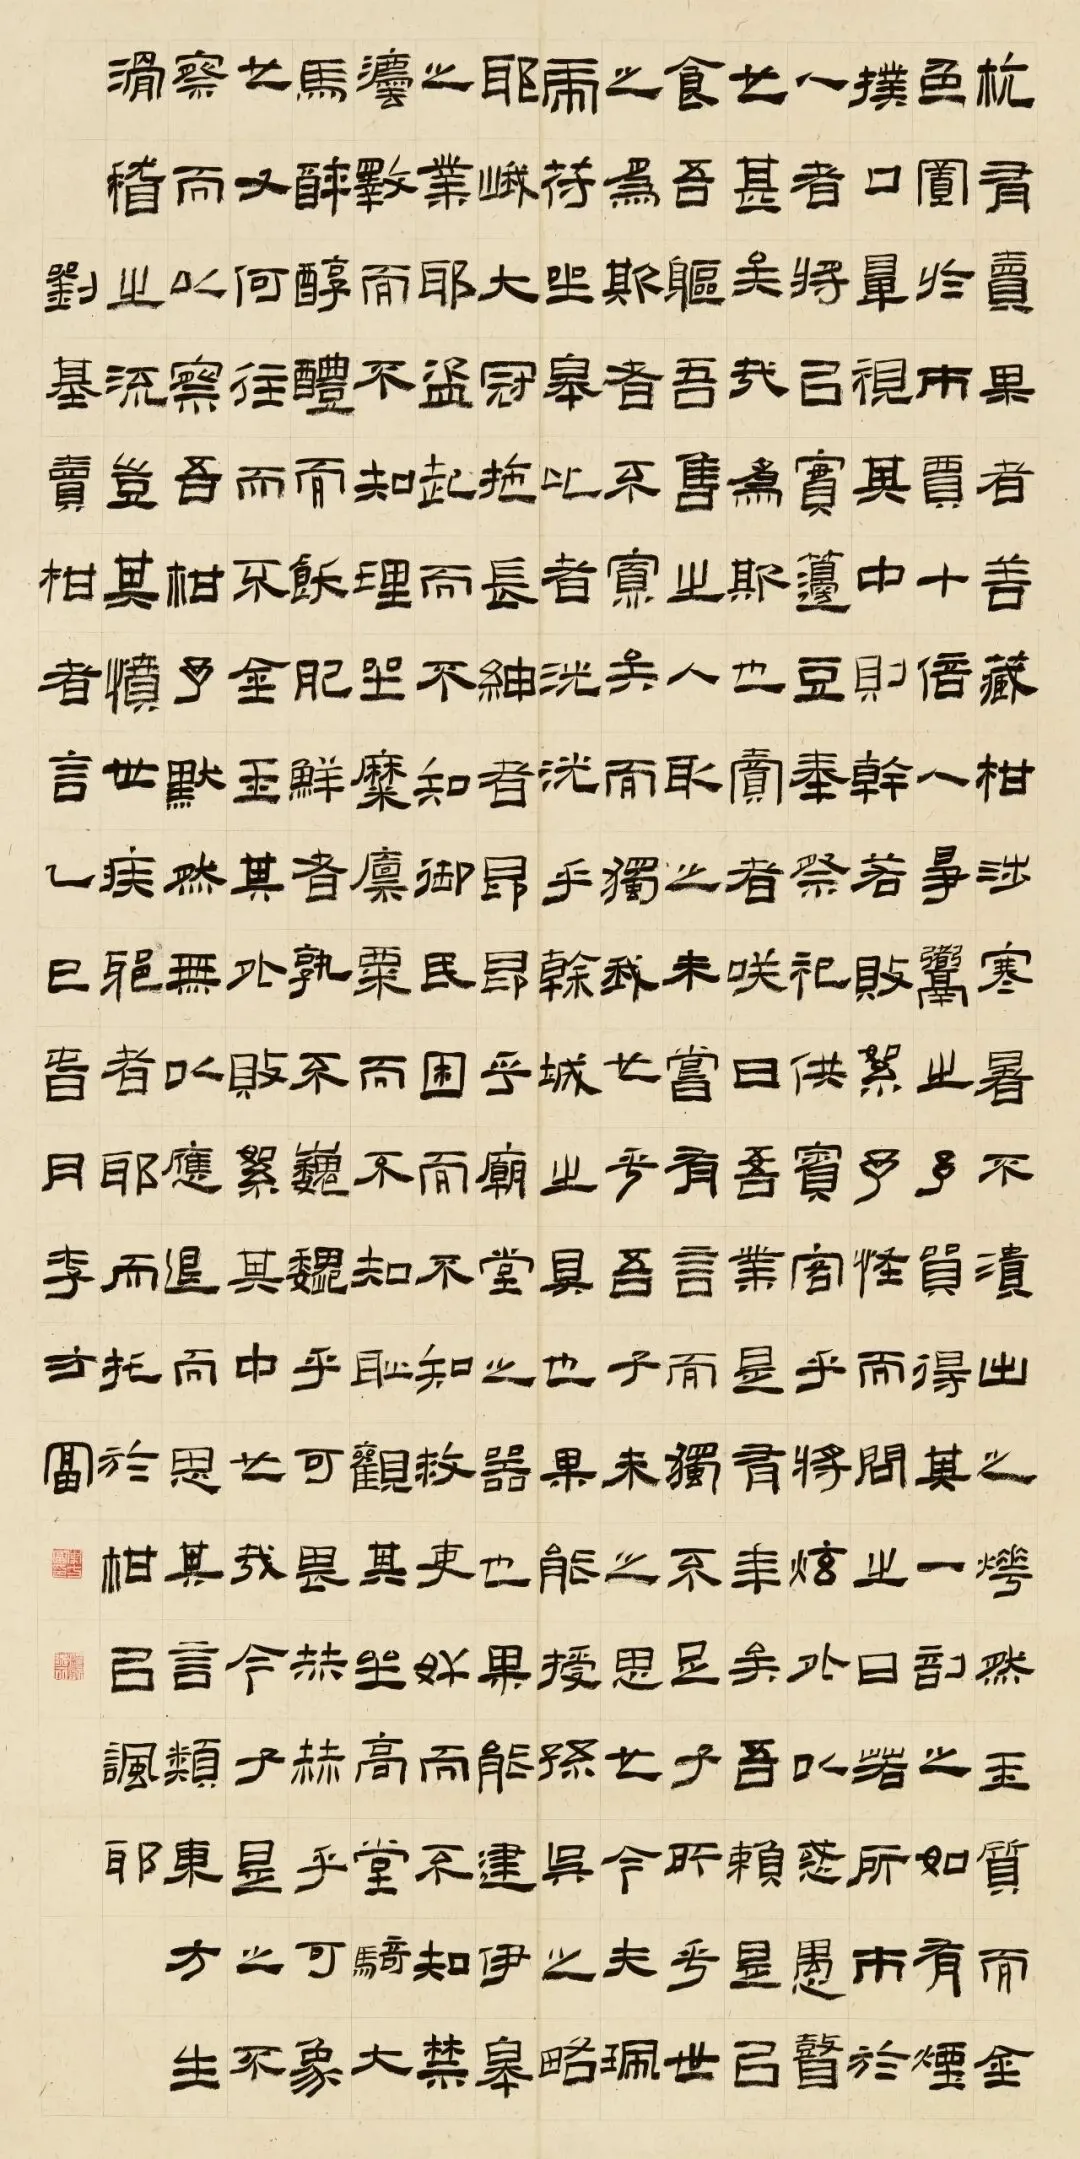 杭有賣果者善藏柑涉寒暑不潰出之燁然玉質而金
色置於市賈十倍人爭鬻之予貿得其一剖之如有煙
撲口鼻視其中則幹若敗絮予怪而問之曰若所市於
人者將以實籩豆奉祭祀供賓客乎將炫外以惑愚瞽
也甚矣哉為欺也賣者咲曰吾業是有年矣吾賴是以
食吾軀吾售之人取之未嘗有言而獨不足子所乎世
之為欺者不寡矣而獨我也乎吾子未之思也今夫珮
虎符坐皋比者洸洸乎幹城之具也果能授孫吳之略
耶峨大冠拖長紳者昂昂乎廟堂之器也果能建伊皋
之業耶盜起而不知御民困而不知救吏奸而不知禁
灋斁而不知理坐糜廩粟而不知恥觀其坐高堂騎大
馬醉醇醴而飫肥鮮者孰不巍巍乎可畏赫赫乎可象
也又何往而不金玉其外敗絮其中也哉今子是之不
察而以察吾柑予默然無以應退而思其言類東方生
滑稽之流豈其憤世疾邪者耶而托於柑以諷耶
劉基賣柑者言乙巳春月李